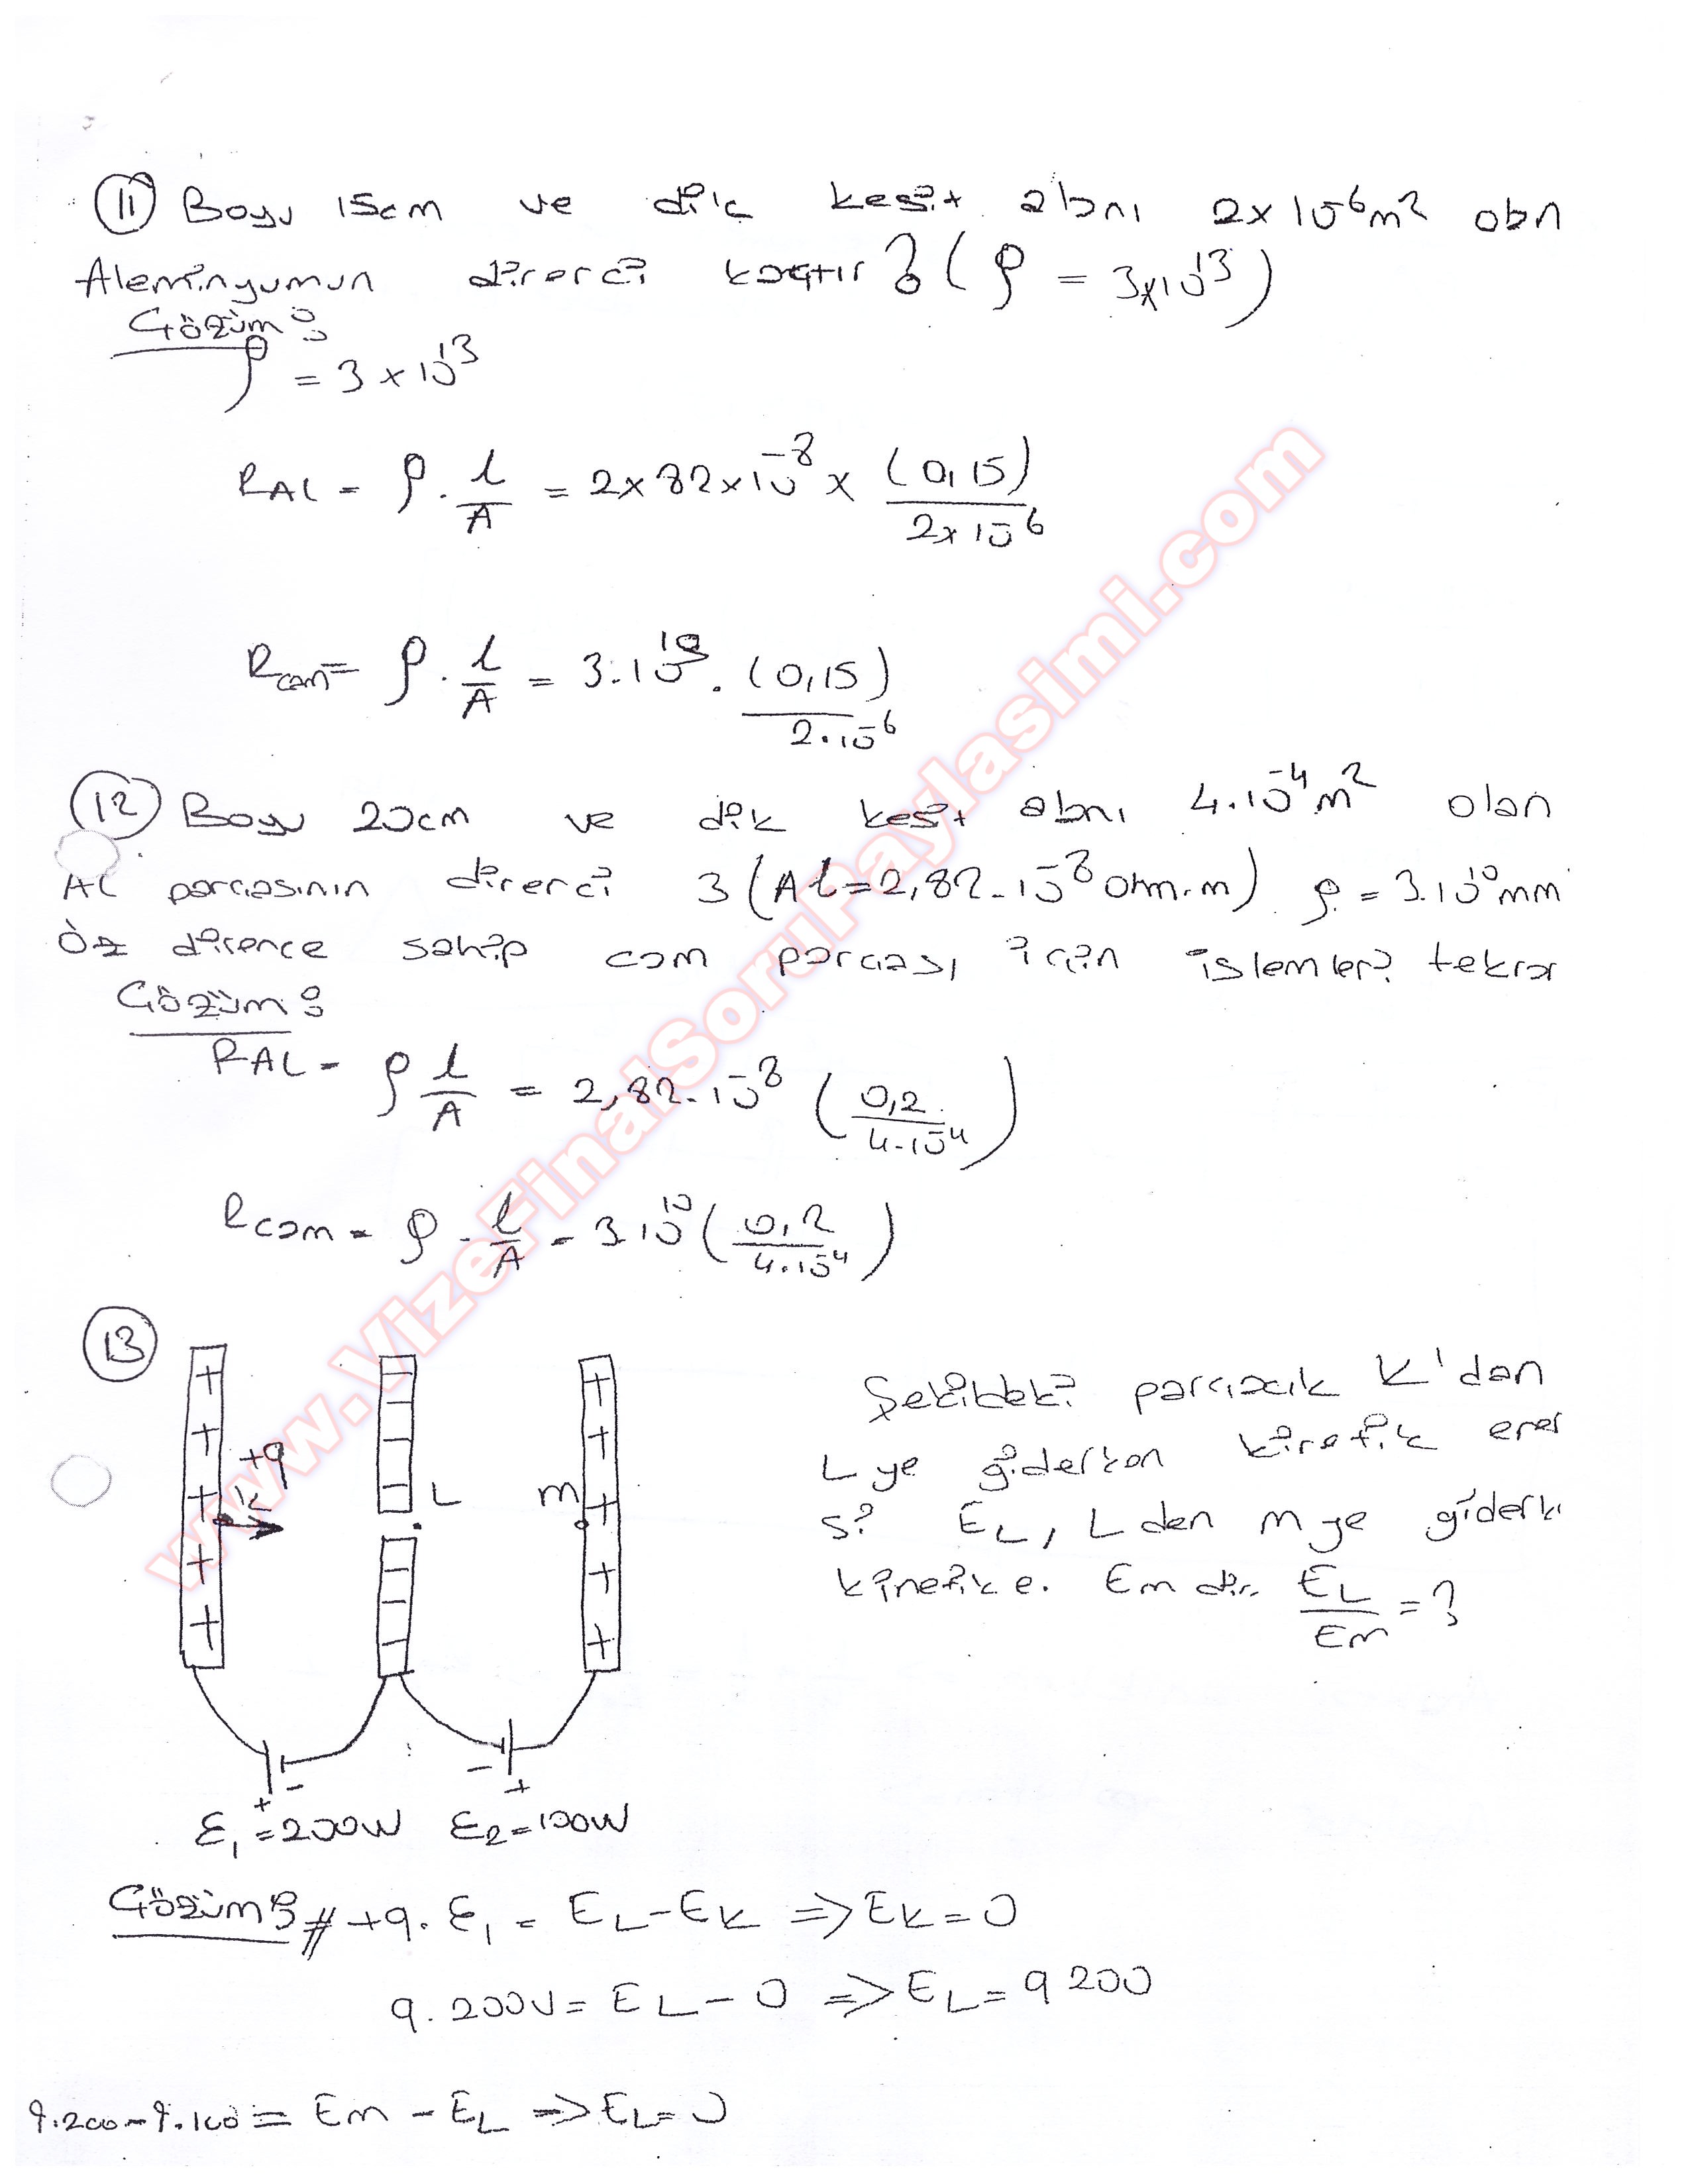 11) Boyu 15cm ve dik kesit alanı 2x10⁻⁶m² olan
Aleminyumun direnci kaçtır? (ρ = 3x10¹³)
Çözüm:
ρ = 3 x 10¹³
R_AL = ρ . l/A = 2x82x10⁻⁸ x (0,15)/(2x10⁻⁶)
R_cam = ρ . l/A = 3.10 . (0,15)/(2.10⁻⁶)
12) Boyu 20cm ve dik kesit alanı 4.10⁻⁴m² olan
AL parçasının direnci 3 (Al=2,82.10⁻⁸ ohm.m) ρ = 3.10¹⁰ mm
Öz dirence sahip cam parçası için işlemleri tekrar
Çözüm:
R_AL = ρ l/A = 2,82.10⁻⁸ (0,2/4.10⁻⁴)
R_cam = ρ . l/A = 3.10¹⁰ (0,2/4.10⁻⁴)
13)
+q
K
L
m
Şekildeki parçacık K'dan
L ye giderken kinetik ener
si E_L, L den m ye giderk
kinetik e. Em dir. E_L/Em = ?
+ -
- +
ε₁ = 200W ε₂ = 100W
Çözüm: # +q. ε₁ = E_L - E_K => E_K = 0
q. 200V = E_L - 0 => E_L = q 200
q.200 - q.100 = Em - E_L => E_L = 0
www.VizeFinalSoruPaylasimi.com